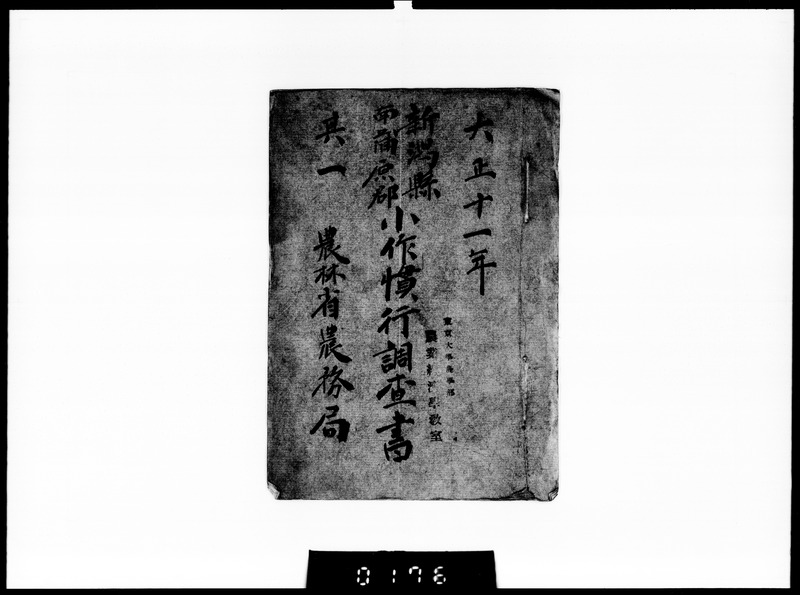 大正十一年
新潟縣
西蒲原郡
小作慣行調査書
其一
農林省農務局
東京大學農學部
農業經濟學教室
0176